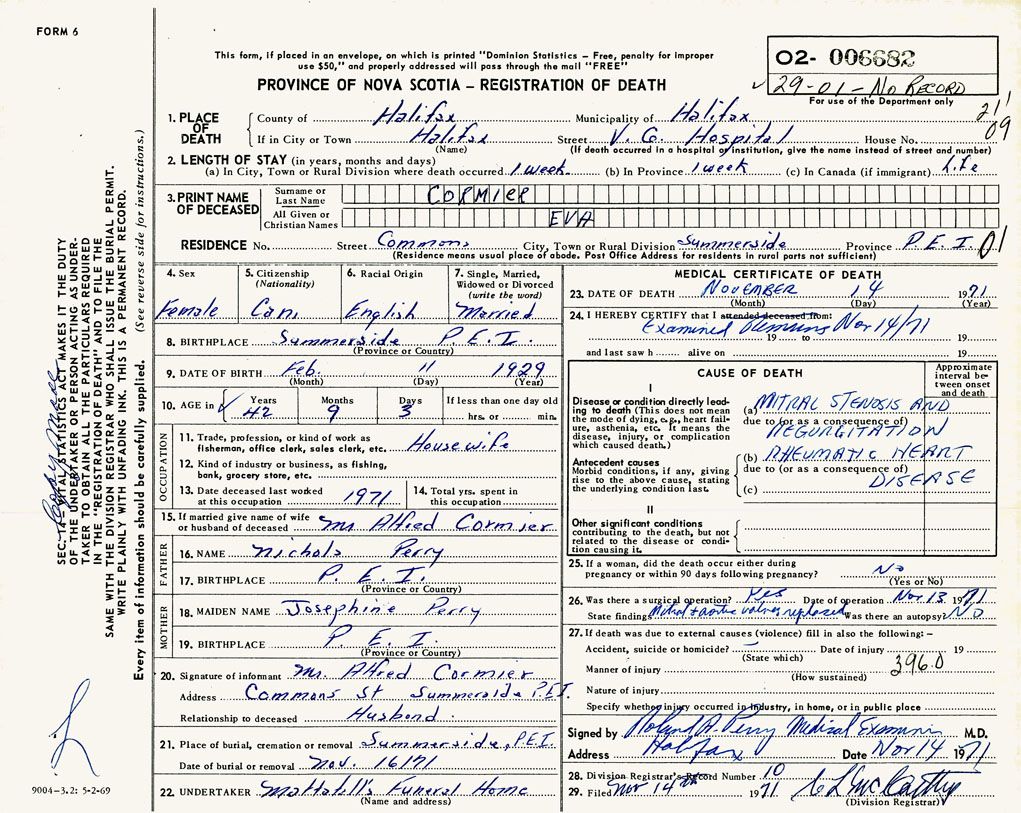 FORM 6
This form, if placed in an envelope, on which is printed "Dominion Statistics – Free, penalty for improper
use $50," and properly addressed will pass through the mail "FREE"
PROVINCE OF NOVA SCOTIA – REGISTRATION OF DEATH
02- 006682
29-01 - No RECORD
For use of the Department only
21
09
1. PLACE OF DEATH
County of Halifax Municipality of Halifax
If in City or Town Halifax Street V. G. Hospital House No.
(Name) (If death occurred in a hospital or institution, give the name instead of street and number)
2. LENGTH OF STAY (in years, months and days)
(a) In City, Town or Rural Division where death occurred 1 week (b) In Province 1 week (c) In Canada (if immigrant) Life
3. PRINT NAME OF DECEASED
Surname or Last Name CORMIER
All Given or Christian Names EVA
RESIDENCE No. Street Commons City, Town or Rural Division Summerside Province P.E.I. 01
(Residence means usual place of abode. Post Office Address for residents in rural parts not sufficient)
4. Sex
Female
5. Citizenship
(Nationality)
Can.
6. Racial Origin
English
7. Single, Married,
Widowed or Divorced
(write the word)
Married
8. BIRTHPLACE Summerside P.E.I.
(Province or Country)
9. DATE OF BIRTH Feb. 11 1929
(Month) (Day) (Year)
10. AGE in Years Months Days If less than one day old
42 9 3 hrs. or min.
OCCUPATION
11. Trade, profession, or kind of work as
fisherman, office clerk, sales clerk, etc. Housewife
12. Kind of industry or business, as fishing,
bank, grocery store, etc.
13. Date deceased last worked
at this occupation 1971
14. Total yrs. spent in
this occupation
15. If married give name of wife
or husband of deceased Mr Alfred Cormier
FATHER
16. NAME Nichols Perry
17. BIRTHPLACE P.E.I.
(Province or Country)
MOTHER
18. MAIDEN NAME Josephine Perry
19. BIRTHPLACE P.E.I.
(Province or Country)
20. Signature of informant Mr. Alfred Cormier
Address Commons St Summerside P.E.I.
Relationship to deceased Husband
21. Place of burial, cremation or removal Summerside, P.E.I.
Date of burial or removal Nov. 16/71
22. UNDERTAKER Mattatall's Funeral Home
(Name and address)
MEDICAL CERTIFICATE OF DEATH
23. DATE OF DEATH NOVEMBER 14 1971
(Month) (Day) (Year)
24. I HEREBY CERTIFY that I attended deceased from:
Examined Remains Nov 14/71
19 to 19
and last saw h alive on 19
CAUSE OF DEATH
Approximate
interval be-
tween onset
and death
I
Disease or condition directly lead-
ing to death (This does not mean
the mode of dying, e.g., heart fail-
ure, asthenia, etc. It means the
disease, injury, or complication
which caused death.)
(a) MITRAL STENOSIS AND
due to (or as a consequence of)
REGURGITATION
Antecedent causes
Morbid conditions, if any, giving
rise to the above cause, stating
the underlying condition last.
(b) RHEUMATIC HEART
due to (or as a consequence of)
DISEASE
(c)
II
Other significant conditions
contributing to the death, but not
related to the disease or condi-
tion causing it.
25. If a woman, did the death occur either during
pregnancy or within 90 days following pregnancy? No
(Yes or No)
26. Was there a surgical operation? Yes Date of operation Nov 13 1971
State findings Mitral + aortic valves replaced Was there an autopsy? NO
27. If death was due to external causes (violence) fill in also the following: –
Accident, suicide or homicide? Date of injury 19
(State which)
Manner of injury 396.0
(How sustained)
Nature of injury
Specify whether injury occurred in industry, in home, or in public place
Signed by Roland A. Perry Medical Examiner M.D.
Address Halifax Date Nov 14 1971
28. Division Registrar's Record Number 10
29. Filed Nov 14th 1971
(Division Registrar)
SEC. 14 – VITAL STATISTICS ACT MAKES IT THE DUTY
OF THE UNDERTAKER OR PERSON ACTING AS UNDER-
TAKER TO OBTAIN ALL THE PARTICULARS REQUIRED
IN THE "REGISTRATION OF DEATH" AND TO FILE THE
SAME WITH THE DIVISION REGISTRAR WHO SHALL ISSUE THE BURIAL PERMIT.
WRITE PLAINLY WITH UNFADING INK. THIS IS A PERMANENT RECORD.
Every item of information should be carefully supplied. (See reverse side for instructions.)
9004–3.2: 5-2-69